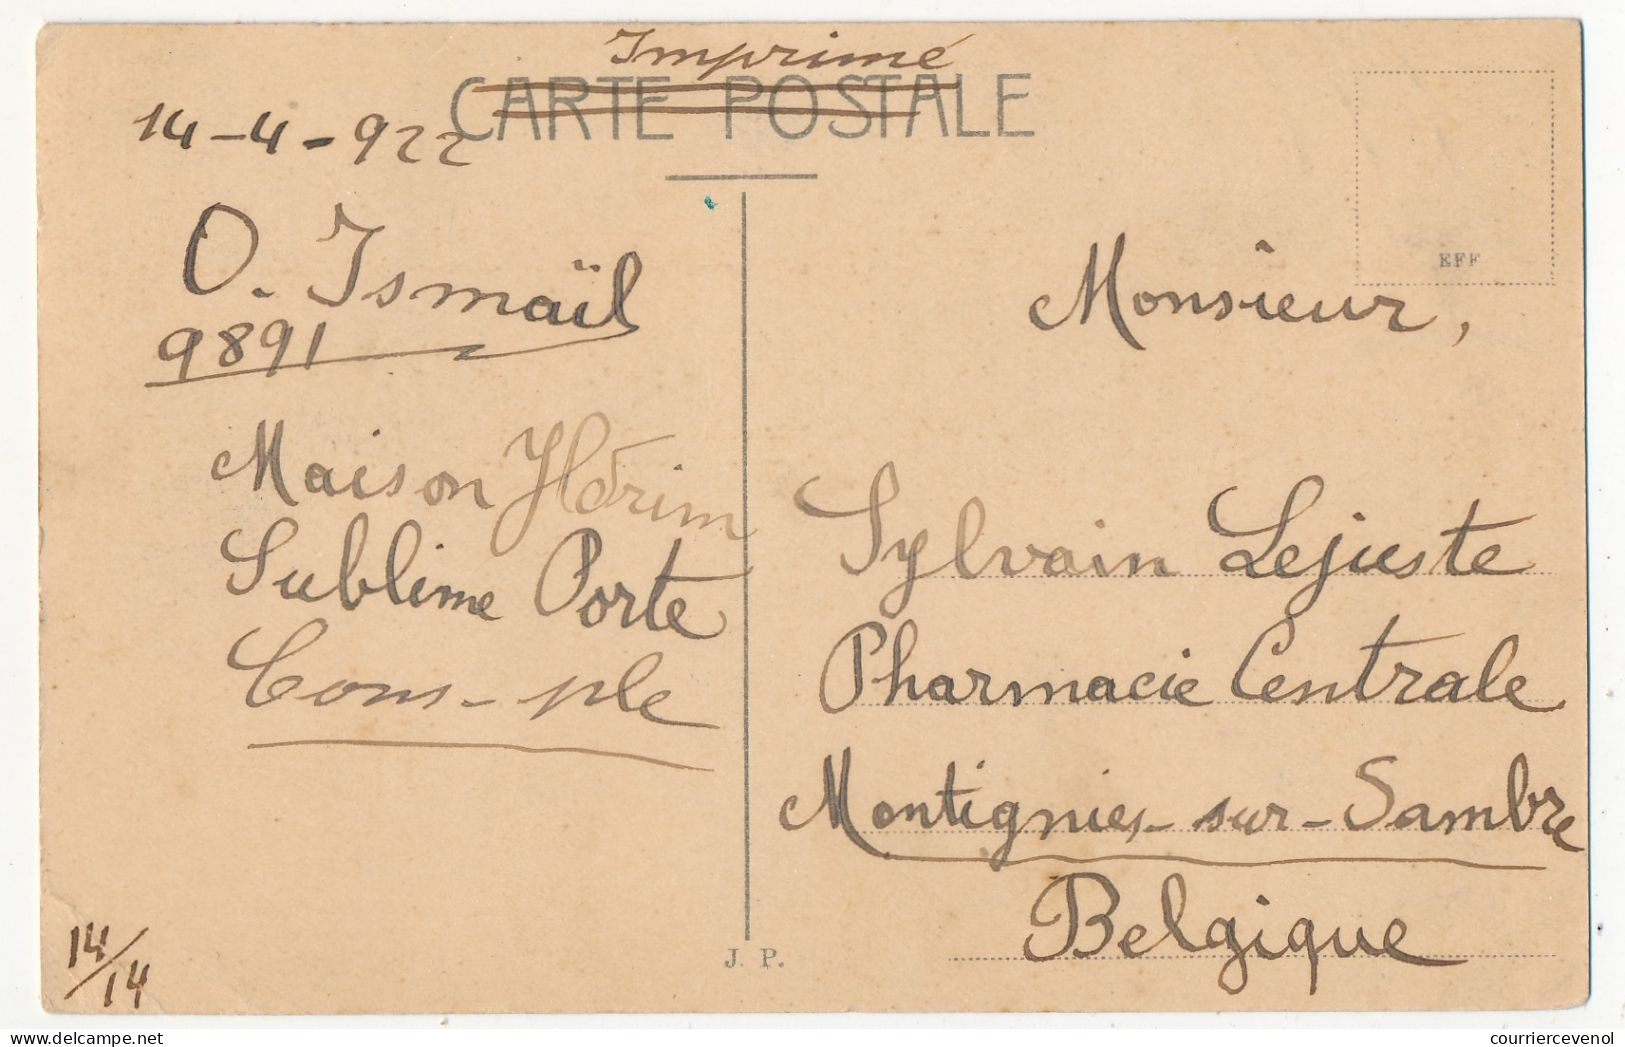 Imprimé
CARTE POSTALE
14-4-922
O. Ismaïl
9891
Maison
Sublime Porte
Cons-ple
14/14
EFF
Monsieur,
Sylvain Lejuste
Pharmacie Centrale
Montignies-sur-Sambre
Belgique
J. P.
courriercevenol